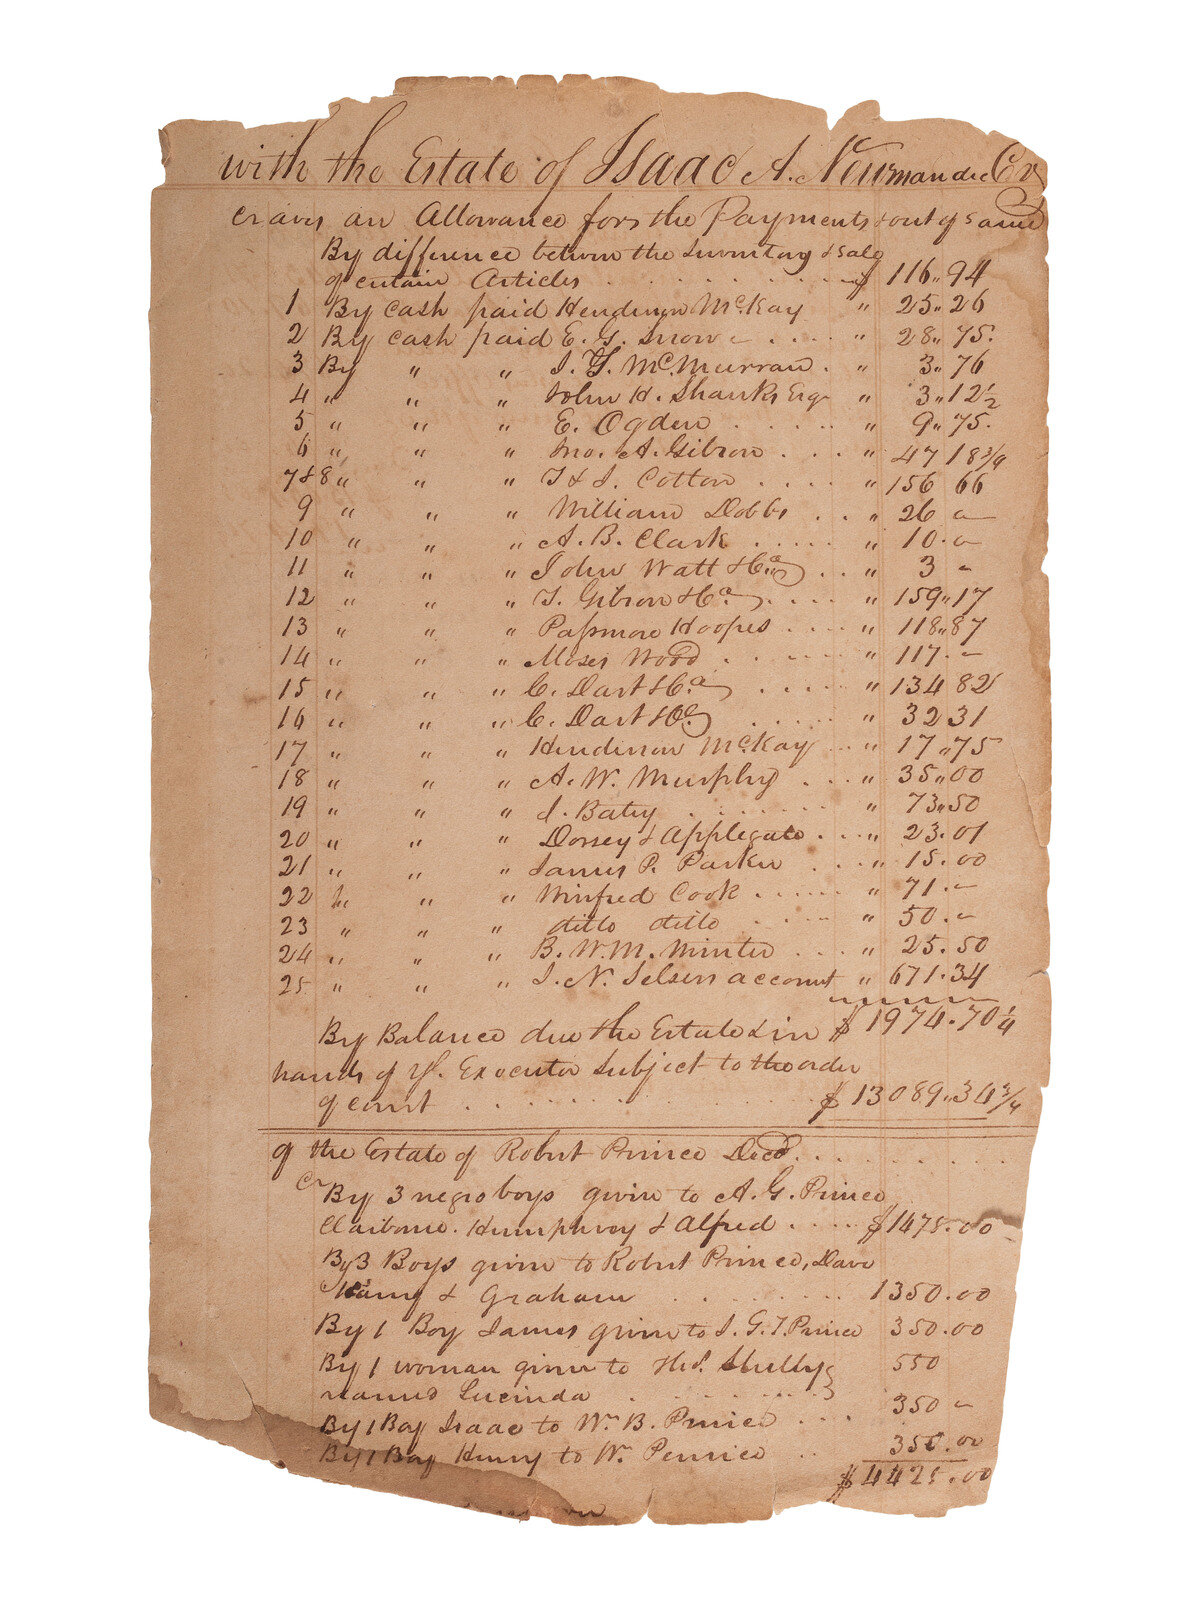 with the Estate of Isaac A. Newman dec Cr
craves an Allowance for the Payments out of same
By difference between the Inventory & sale
of certain Articles . . . . . . . . . . $ 116 " 94
1 By cash paid Henderson McKay " 25 " 26
2 By cash paid E. G. Snow . . . . " 28 " 75.
3 By " " J. G. McMurran . " 3 " 76
4 " " " John H. Shanks Esq " 3 " 12 1/2
5 " " " E. Ogden . . . . . . " 9 " 75.
6 " " " Jno. A. Gibson . . . " 47 18 3/4
7 & 8 " " " T & J. Cotton . . . . " 156 66
9 " " " William Dobbs . . " 26 –
10 " " " A. B. Clark . . . . . " 10. –
11 " " " John Watt & Co . . " 3 –
12 " " " T. Gibson & Co . . . . " 159 " 17
13 " " " Passmore Hoopes . . . . " 118 " 87
14 " " " Moses Wood . . . . . " 117. –
15 " " " C. Dart & Co . . . . " 134 82
16 " " " C. Dart & Co . . . . . " 32 31
17 " " " Henderson McKay . . " 17 " 75
18 " " " A. W. Murphy . . . " 35 " 00
19 " " " J. Baty . . . . . . . " 73 " 50
20 " " " Dorsey & Applegate . . . " 23. 01
21 " " " James P. Parker . . . " 15. 00
22 " " " Winifred Cook . . . . . " 71. –
23 " " " ditto ditto . . . . " 50. –
24 " " " B. W. M. Minter . . . " 25. 50
25 " " " J. N. Selsers account " 671. 34
By Balance due the Estate & in $ 1974. 70 1/4
hands of ye. Executor subject to the order
of court . . . . . . . . . . $ 13089 " 34 3/4
of the Estate of Robert Prince Decd. . . . . . .
Cr By 3 negro boys given to A. G. Prince
Claiborne. Humphrey & Alfred . . . . $ 1475. 00
By 3 Boys given to Robert Prince, Dave
& Graham . . . . . . . . . 1350. 00
By 1 Boy James given to J. G. T. Prince 350. 00
By 1 woman given to Shelby 550
named Lucinda . . . . . . . .
By 1 Boy Isaac to Wm B. Prince . . . 350 –
By 1 Boy Henry to Wm Penrice . . 350. 00
$ 4425. 00